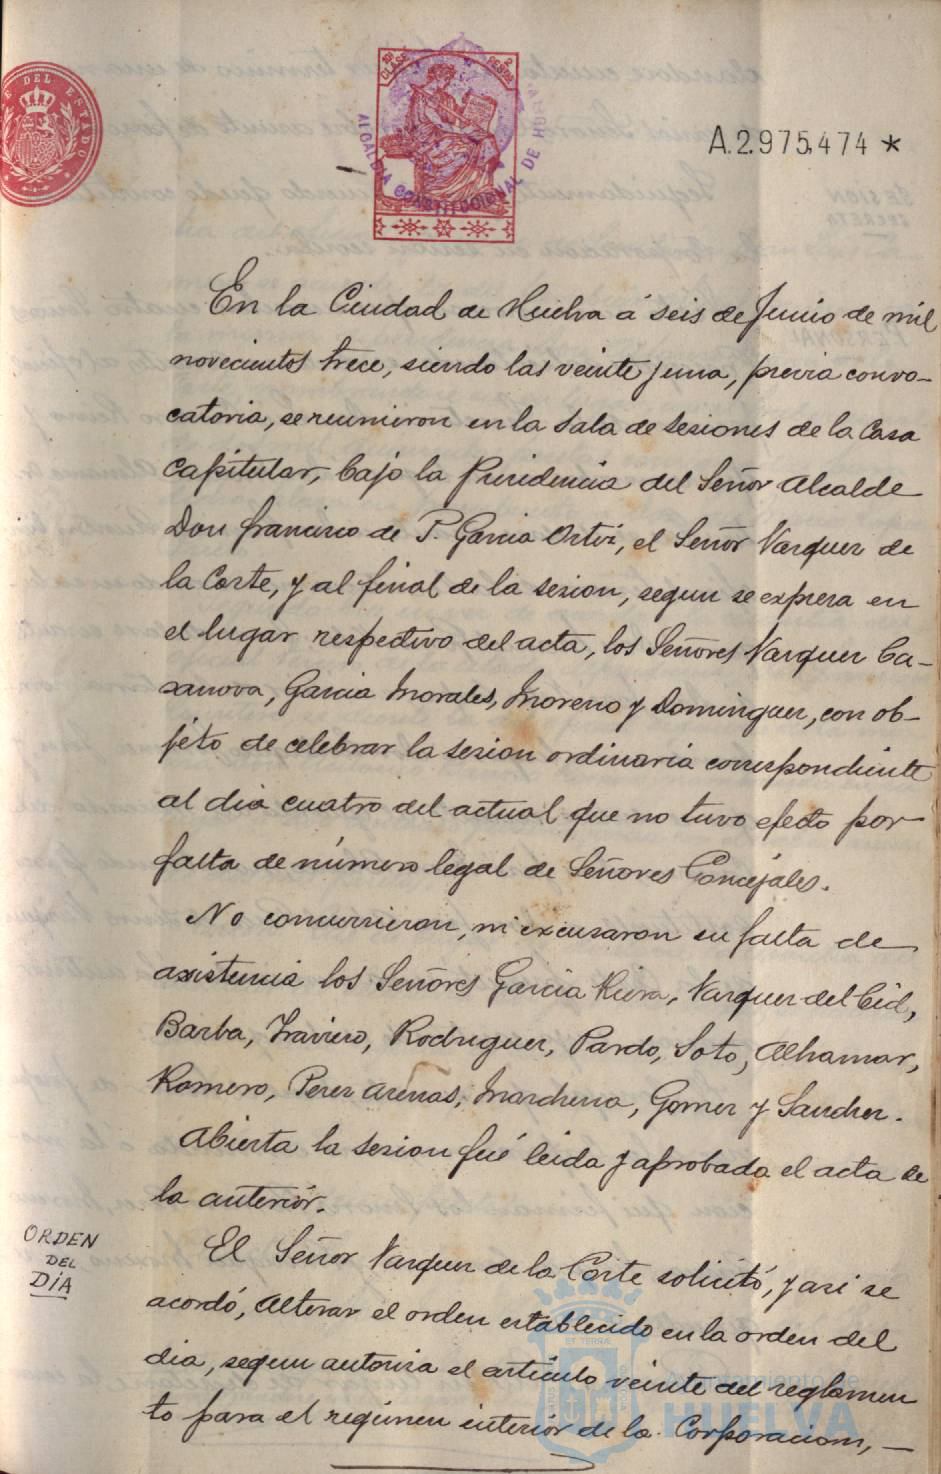 10ª CLASE
2 PESETAS
ALCALDIA CONSTITUCIONAL DE HU
DEL ESTADO
A.2.975,474 *
En la Ciudad de Huelva á seis de Junio de mil
novecientos trece, siendo las veinte y una, previa convo-
catoria, se reunieron en la Sala de Sesiones de la Casa
Capitular, bajo la Presidencia del Señor Alcalde
Don Francisco de P. Garcia Ortiz, el Señor Vazquez de
la Corte, y al final de la sesion, segun se expresa en
el lugar respectivo del acta, los Señores Vazquez Ca-
sanova, Garcia Morales, Moreno y Dominguez, con ob-
jeto de celebrar la sesion ordinaria correspondiente
al dia cuatro del actual que no tuvo efecto por
falta de número legal de Señores Concejales.
No concurrieron, ni excusaron su falta de
asistencia los Señores Garcia Riera, Vazquez del Cid,
Barba, Traviero, Rodriguez, Pardo, Soto, Alhamar,
Romero, Perez Arenas, Marchena, Gomez y Sanchez.
Abierta la sesion fué leida y aprobada el acta de
la anterior.
ORDEN
DEL
DÍA
El Señor Vazquez de la Corte solicitó, y asi se
acordó, alterar el orden establecido en la orden del
dia, segun autoriza el artículo veinte del reglamen
to para el regimen interior de la Corporacion, —
Ayuntamiento de
HUELVA